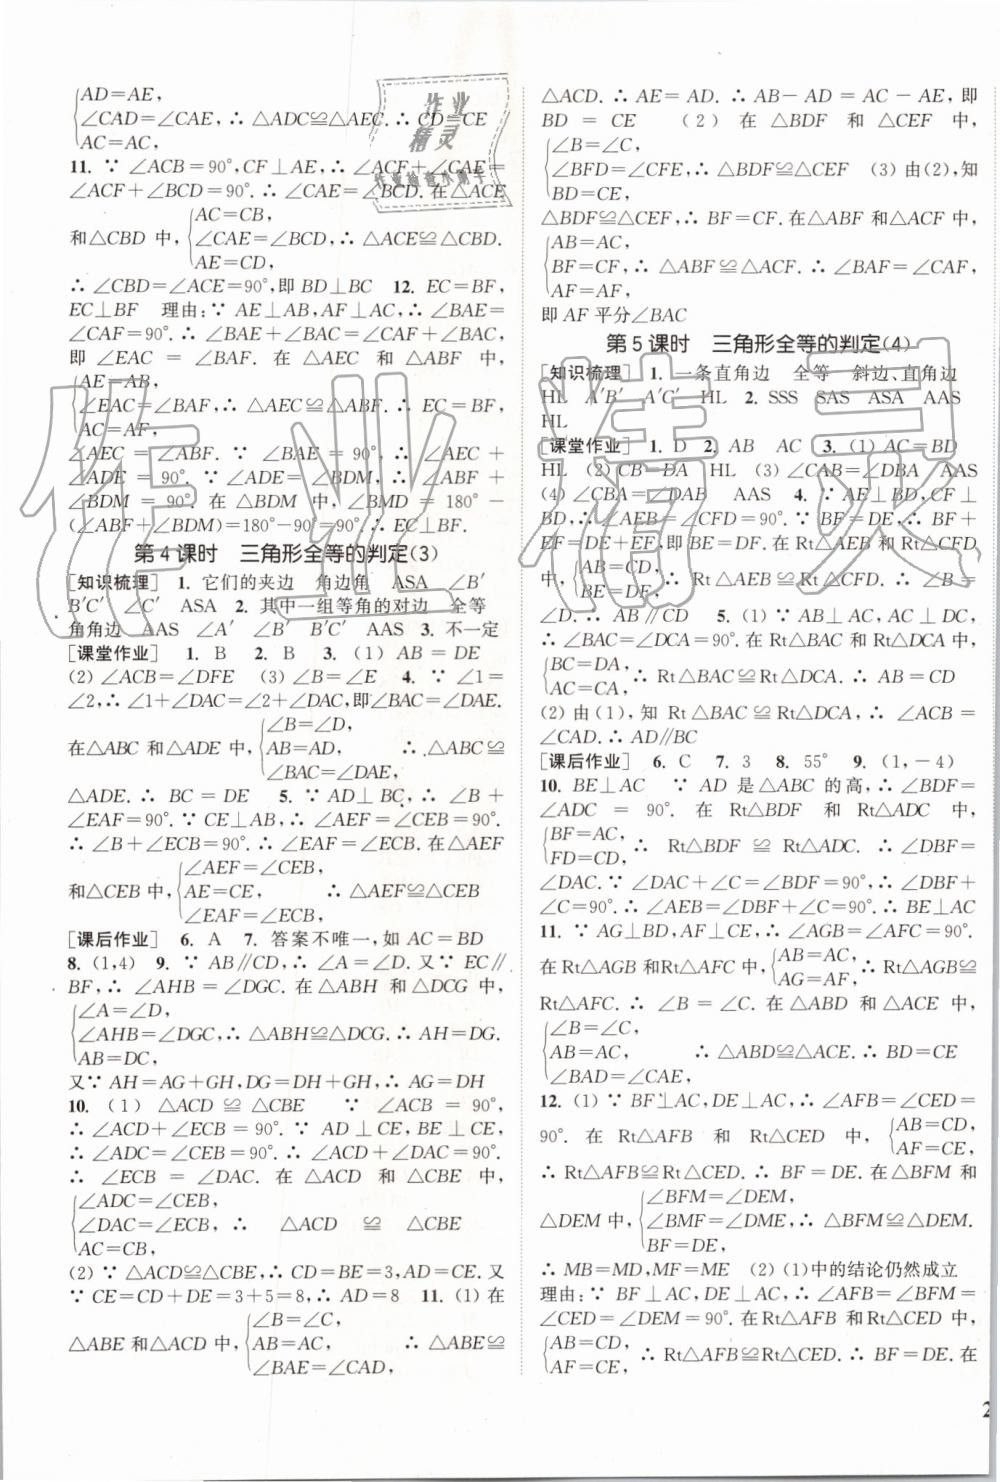 AD=AE,
∠CAD=∠CAE, ∴ △ADC≌△AEC. ∴ CD=CE
AC=AC,
11. ∵ ∠ACB=90°,CF⊥AE,∴ ∠ACF+∠CAE=
∠ACF+∠BCD=90°. ∴ ∠CAE=∠BCD. 在△ACE
AC=CB,
和△CBD 中, ∠CAE=∠BCD,∴ △ACE≌△CBD.
AE=CD,
∴ ∠CBD=∠ACE=90°,即 BD⊥BC 12. EC=BF,
EC⊥BF 理由:∵ AE⊥AB,AF⊥AC,∴ ∠BAE=
∠CAF=90°. ∴ ∠BAE+∠BAC=∠CAF+∠BAC,
即 ∠EAC = ∠BAF. 在 △AEC 和 △ABF 中,
AE=AB,
∠EAC=∠BAF,∴ △AEC≌△ABF. ∴ EC=BF,
AC=AF,
∠AEC = ∠ABF. ∵ ∠BAE = 90°, ∴ ∠AEC +
∠ADE = 90°. ∵ ∠ADE = ∠BDM, ∴ ∠ABF +
∠BDM = 90°. 在 △BDM 中, ∠BMD = 180° -
(∠ABF+∠BDM)=180°-90°=90°. ∴ EC⊥BF.
第 4 课时 三角形全等的判定(3)
[知识梳理] 1. 它们的夹边 角边角 ASA ∠B′
B′C′ ∠C′ ASA 2. 其中一组等角的对边 全等
角角边 AAS ∠A′ ∠B′ B′C′ AAS 3. 不一定
[课堂作业] 1. B 2. B 3. (1) AB=DE
(2) ∠ACB=∠DFE (3) ∠B=∠E 4. ∵ ∠1=
∠2,∴ ∠1+∠DAC=∠2+∠DAC,即∠BAC=∠DAE.
∠B=∠D,
在△ABC 和△ADE 中, AB=AD, ∴ △ABC≌
∠BAC=∠DAE,
△ADE. ∴ BC=DE 5. ∵ AD⊥BC, ∴ ∠B+
∠EAF=90°. ∵ CE⊥AB, ∴ ∠AEF=∠CEB=90°.
∴ ∠B+∠ECB=90°. ∴ ∠EAF=∠ECB. 在△AEF
∠AEF=∠CEB,
和△CEB 中, AE=CE, ∴ △AEF≌△CEB
∠EAF=∠ECB,
[课后作业] 6. A 7. 答案不唯一,如 AC=BD
8. (1,4) 9. ∵ AB∥CD,∴ ∠A=∠D. 又∵ EC∥
BF,∴ ∠AHB=∠DGC. 在△ABH 和△DCG 中,
∠A=∠D,
∠AHB=∠DGC,∴ △ABH≌△DCG. ∴ AH=DG.
AB=DC,
又∵ AH=AG+GH,DG=DH+GH,∴ AG=DH
10. (1) △ACD ≌ △CBE ∵ ∠ACB = 90°,
∴ ∠ACD+∠ECB=90°. ∵ AD⊥CE,BE⊥CE,
∴ ∠ADC=∠CEB=90°. ∴ ∠ACD+∠DAC=90°.
∴ ∠ECB = ∠DAC. 在 △ACD 和 △CBE 中,
∠ADC=∠CEB,
∠DAC=∠ECB, ∴ △ACD ≌ △CBE
AC=CB,
(2) ∵ △ACD≌△CBE,∴ CD=BE=3,AD=CE. 又
∵ CE=CD+DE=3+5=8,∴ AD=8 11. (1) 在
∠B=∠C,
△ABE 和△ACD 中, AB=AC, ∴ △ABE≌
∠BAE=∠CAD,
△ACD. ∴ AE=AD. ∴ AB-AD=AC-AE, 即
BD = CE (2) 在 △BDF 和 △CEF 中,
∠B=∠C,
∠BFD=∠CFE, ∴ △BDF≌△CEF (3) 由(2),知
BD=CE,
△BDF≌△CEF,∴ BF=CF. 在△ABF 和△ACF 中,
AB=AC,
BF=CF, ∴ △ABF≌△ACF. ∴ ∠BAF=∠CAF,
AF=AF,
即 AF 平分∠BAC
第 5 课时 三角形全等的判定(4)
[知识梳理] 1. 一条直角边 全等 斜边、直角边
HL A′B′ A′C′ HL 2. SSS SAS ASA AAS
HL
[课堂作业] 1. D 2. AB AC 3. (1) AC=BD
HL (2) CB=DA HL (3) ∠CAB=∠DBA AAS
(4) ∠CBA=∠DAB AAS 4. ∵ AE⊥BD,CF⊥
BD,∴ ∠AEB=∠CFD=90°. ∵ BF=DE,∴ BF+
EF=DE+EF,即 BE=DF. 在 Rt△AEB 和 Rt△CFD
中, AB=CD, ∴ Rt△AEB≌Rt△CFD. ∴ ∠B=
BE=DF,
∠D. ∴ AB∥CD 5. (1) ∵ AB⊥AC, AC⊥DC,
∴ ∠BAC=∠DCA=90°. 在 Rt△BAC 和 Rt△DCA 中,
BC=DA,
AC=CA, ∴ Rt△BAC≌Rt△DCA. ∴ AB=CD
(2) 由(1),知 Rt△BAC≌Rt△DCA, ∴ ∠ACB=
∠CAD. ∴ AD∥BC
[课后作业] 6. C 7. 3 8. 55° 9. (1,-4)
10. BE⊥AC ∵ AD 是△ABC 的高,∴ ∠BDF=
∠ADC = 90°. 在 Rt△BDF 和 Rt△ADC 中,
BF=AC,
FD=CD, ∴ Rt△BDF ≌ Rt△ADC. ∴ ∠DBF=
∠DAC. ∵ ∠DAC+∠C=∠BDF=90°,∴ ∠DBF+
∠C=90°. ∴ ∠AEB=∠DBF+∠C=90°. ∴ BE⊥AC
11. ∵ AG⊥BD,AF⊥CE,∴ ∠AGB=∠AFC=90°.
在 Rt△AGB 和Rt△AFC 中, AB=AC, ∴ Rt△AGB≌
AG=AF,
Rt△AFC. ∴ ∠B=∠C. 在△ABD 和△ACE 中,
∠B=∠C,
AB=AC, ∴ △ABD≌△ACE. ∴ BD=CE
∠BAD=∠CAE,
12. (1) ∵ BF⊥AC,DE⊥AC,∴ ∠AFB=∠CED=
90°. 在 Rt△AFB 和 Rt△CED 中, AB=CD,
AF=CE,
∴ Rt△AFB≌Rt△CED. ∴ BF=DE. 在△BFM 和
∠BFM=∠DEM,
△DEM 中, ∠BMF=∠DME, ∴ △BFM≌△DEM.
BF=DE,
∴ MB=MD,MF=ME (2) (1)中的结论仍然成立
理由:∵ BF⊥AC,DE⊥AC,∴ ∠AFB=∠BFM=
∠CED=∠DEM=90°. 在Rt△AFB 和Rt△CED 中,
AB=CD,
AF=CE, ∴ Rt△AFB≌Rt△CED. ∴ BF=DE. 在
2
作业
精灵